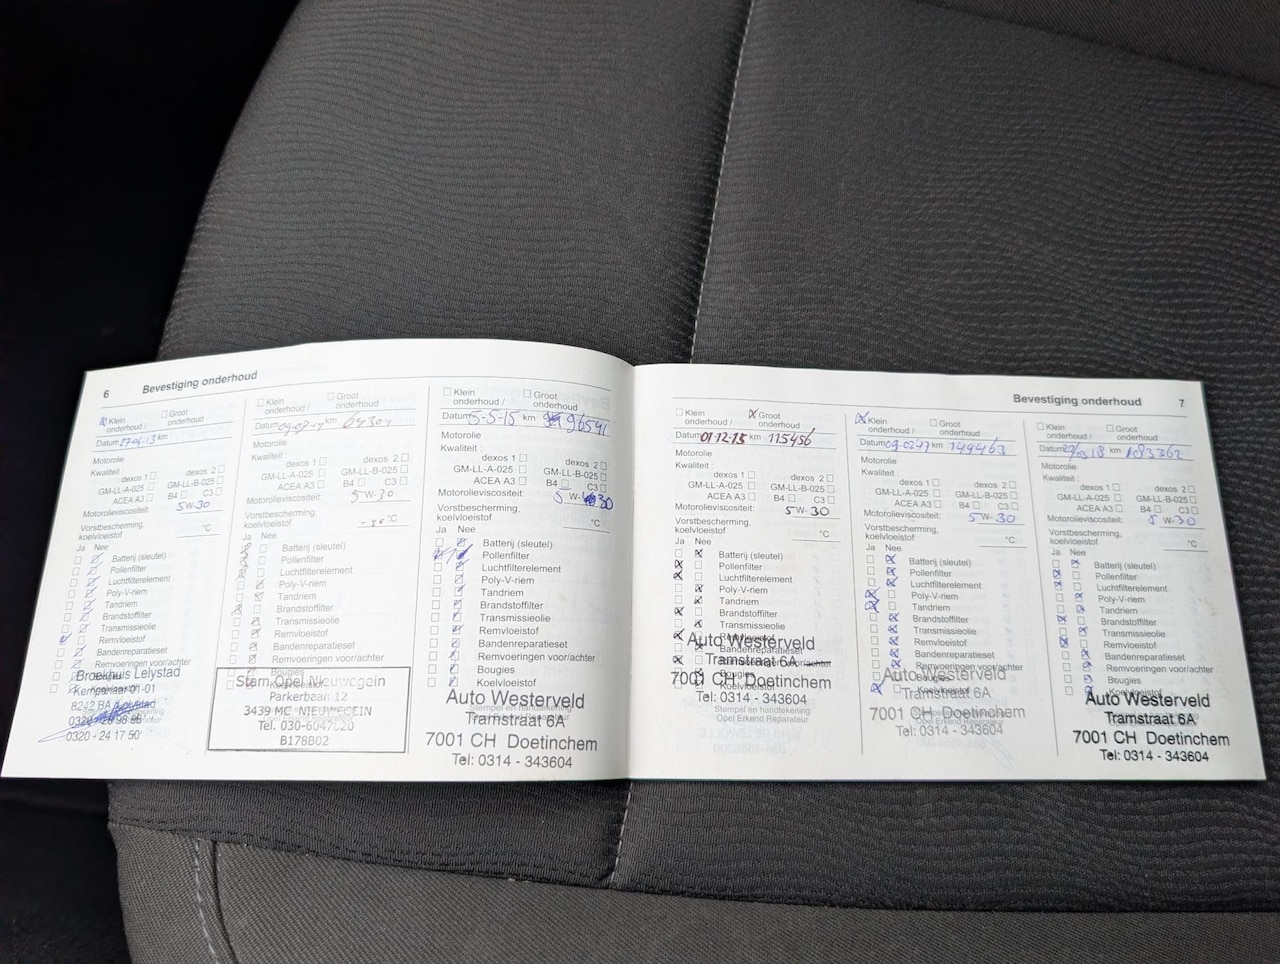 6 Bevestiging onderhoud
☒ Klein onderhoud / ☐ Groot onderhoud
Datum 27-04-13 km
Motorolie
Kwaliteit:
dexos 1 ☐
GM-LL-A-025 ☐
ACEA A3 ☐
Motorolieviscositeit:
5W-30
Vorstbescherming, koelvloeistof °C
Ja Nee
Batterij (sleutel)
Pollenfilter
Luchtfilterelement
Poly-V-riem
Tandriem
Brandstoffilter
Transmissieolie
Remvloeistof
Bandenreparatieset
Remvoeringen voor/achter
Broekhuis Lelystad
8242 BA Lelystad
0320 - 24 17 50
☐ Klein onderhoud / ☐ Groot onderhoud
Datum km
Motorolie
Kwaliteit:
dexos 1 ☐ dexos 2 ☐
GM-LL-A-025 ☐ GM-LL-B-025 ☐
ACEA A3 ☐ B4 ☐ C3 ☐
Motorolieviscositeit: 5W-30
Vorstbescherming, koelvloeistof °C
Ja Nee
Batterij (sleutel)
Pollenfilter
Luchtfilterelement
Poly-V-riem
Tandriem
Brandstoffilter
Transmissieolie
Remvloeistof
Bandenreparatieset
Remvoeringen voor/achter
Bougies
Stam Opel Nieuwegein
Parkerbaan 12
3439 MC NIEUWEGEIN
Tel. 030-6047020
B178B02
☐ Klein onderhoud / ☐ Groot onderhoud
Datum 5-5-15 km 96541
Motorolie
Kwaliteit:
dexos 1 ☐ dexos 2 ☐
GM-LL-A-025 ☐ GM-LL-B-025 ☐
ACEA A3 ☐ B4 ☐ C3 ☐
Motorolieviscositeit: 5 W-30
Vorstbescherming, koelvloeistof °C
Ja Nee
Batterij (sleutel)
Pollenfilter
Luchtfilterelement
Poly-V-riem
Tandriem
Brandstoffilter
Transmissieolie
Remvloeistof
Bandenreparatieset
Remvoeringen voor/achter
Bougies
Koelvloeistof
Auto Westerveld
Tramstraat 6A
7001 CH Doetinchem
Tel: 0314 - 343604
Bevestiging onderhoud 7
☐ Klein onderhoud / ☒ Groot onderhoud
Datum 01-12-15 km 115456
Motorolie
Kwaliteit:
dexos 1 ☐ dexos 2 ☐
GM-LL-A-025 ☐ GM-LL-B-025 ☐
ACEA A3 ☐ B4 ☐ C3 ☐
Motorolieviscositeit: 5W-30
Vorstbescherming, koelvloeistof °C
Ja Nee
Batterij (sleutel)
Pollenfilter
Luchtfilterelement
Poly-V-riem
Tandriem
Brandstoffilter
Transmissieolie
Remvloeistof
Bandenreparatieset
Auto Westerveld
Tramstraat 6A
7001 CH Doetinchem
Tel: 0314 - 343604
Stempel en handtekening
Opel Erkend Reparateur
☒ Klein onderhoud / ☐ Groot onderhoud
Datum 09-02-17 km 149463
Motorolie
Kwaliteit:
dexos 1 ☐ dexos 2 ☐
GM-LL-A-025 ☐ GM-LL-B-025 ☐
ACEA A3 ☐ B4 ☐ C3 ☐
Motorolieviscositeit: 5W-30
Vorstbescherming, koelvloeistof °C
Ja Nee
Batterij (sleutel)
Pollenfilter
Luchtfilterelement
Poly-V-riem
Tandriem
Brandstoffilter
Transmissieolie
Remvloeistof
Bandenreparatieset
Remvoeringen voor/achter
Bougies
Koelvloeistof
Auto Westerveld
Tramstraat 6A
7001 CH Doetinchem
Tel: 0314 - 343604
☐ Klein onderhoud / ☐ Groot onderhoud
Datum 18 km 183362
Motorolie
Kwaliteit:
dexos 1 ☐ dexos 2 ☐
GM-LL-A-025 ☐ GM-LL-B-025 ☐
ACEA A3 ☐ B4 ☐ C3 ☐
Motorolieviscositeit: 5W-30
Vorstbescherming, koelvloeistof °C
Ja Nee
Batterij (sleutel)
Pollenfilter
Luchtfilterelement
Poly-V-riem
Tandriem
Brandstoffilter
Transmissieolie
Remvloeistof
Bandenreparatieset
Remvoeringen voor/achter
Bougies
Koelvloeistof
Auto Westerveld
Tramstraat 6A
7001 CH Doetinchem
Tel: 0314 - 343604